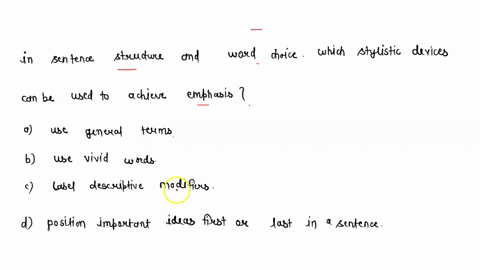 in sentence structure and word choice. which stylistic devices
can be used to achieve emphasis?
a) use general terms.
b) use vivid words.
c) label descriptive modifiers.
d) position important ideas first or last in a sentence.